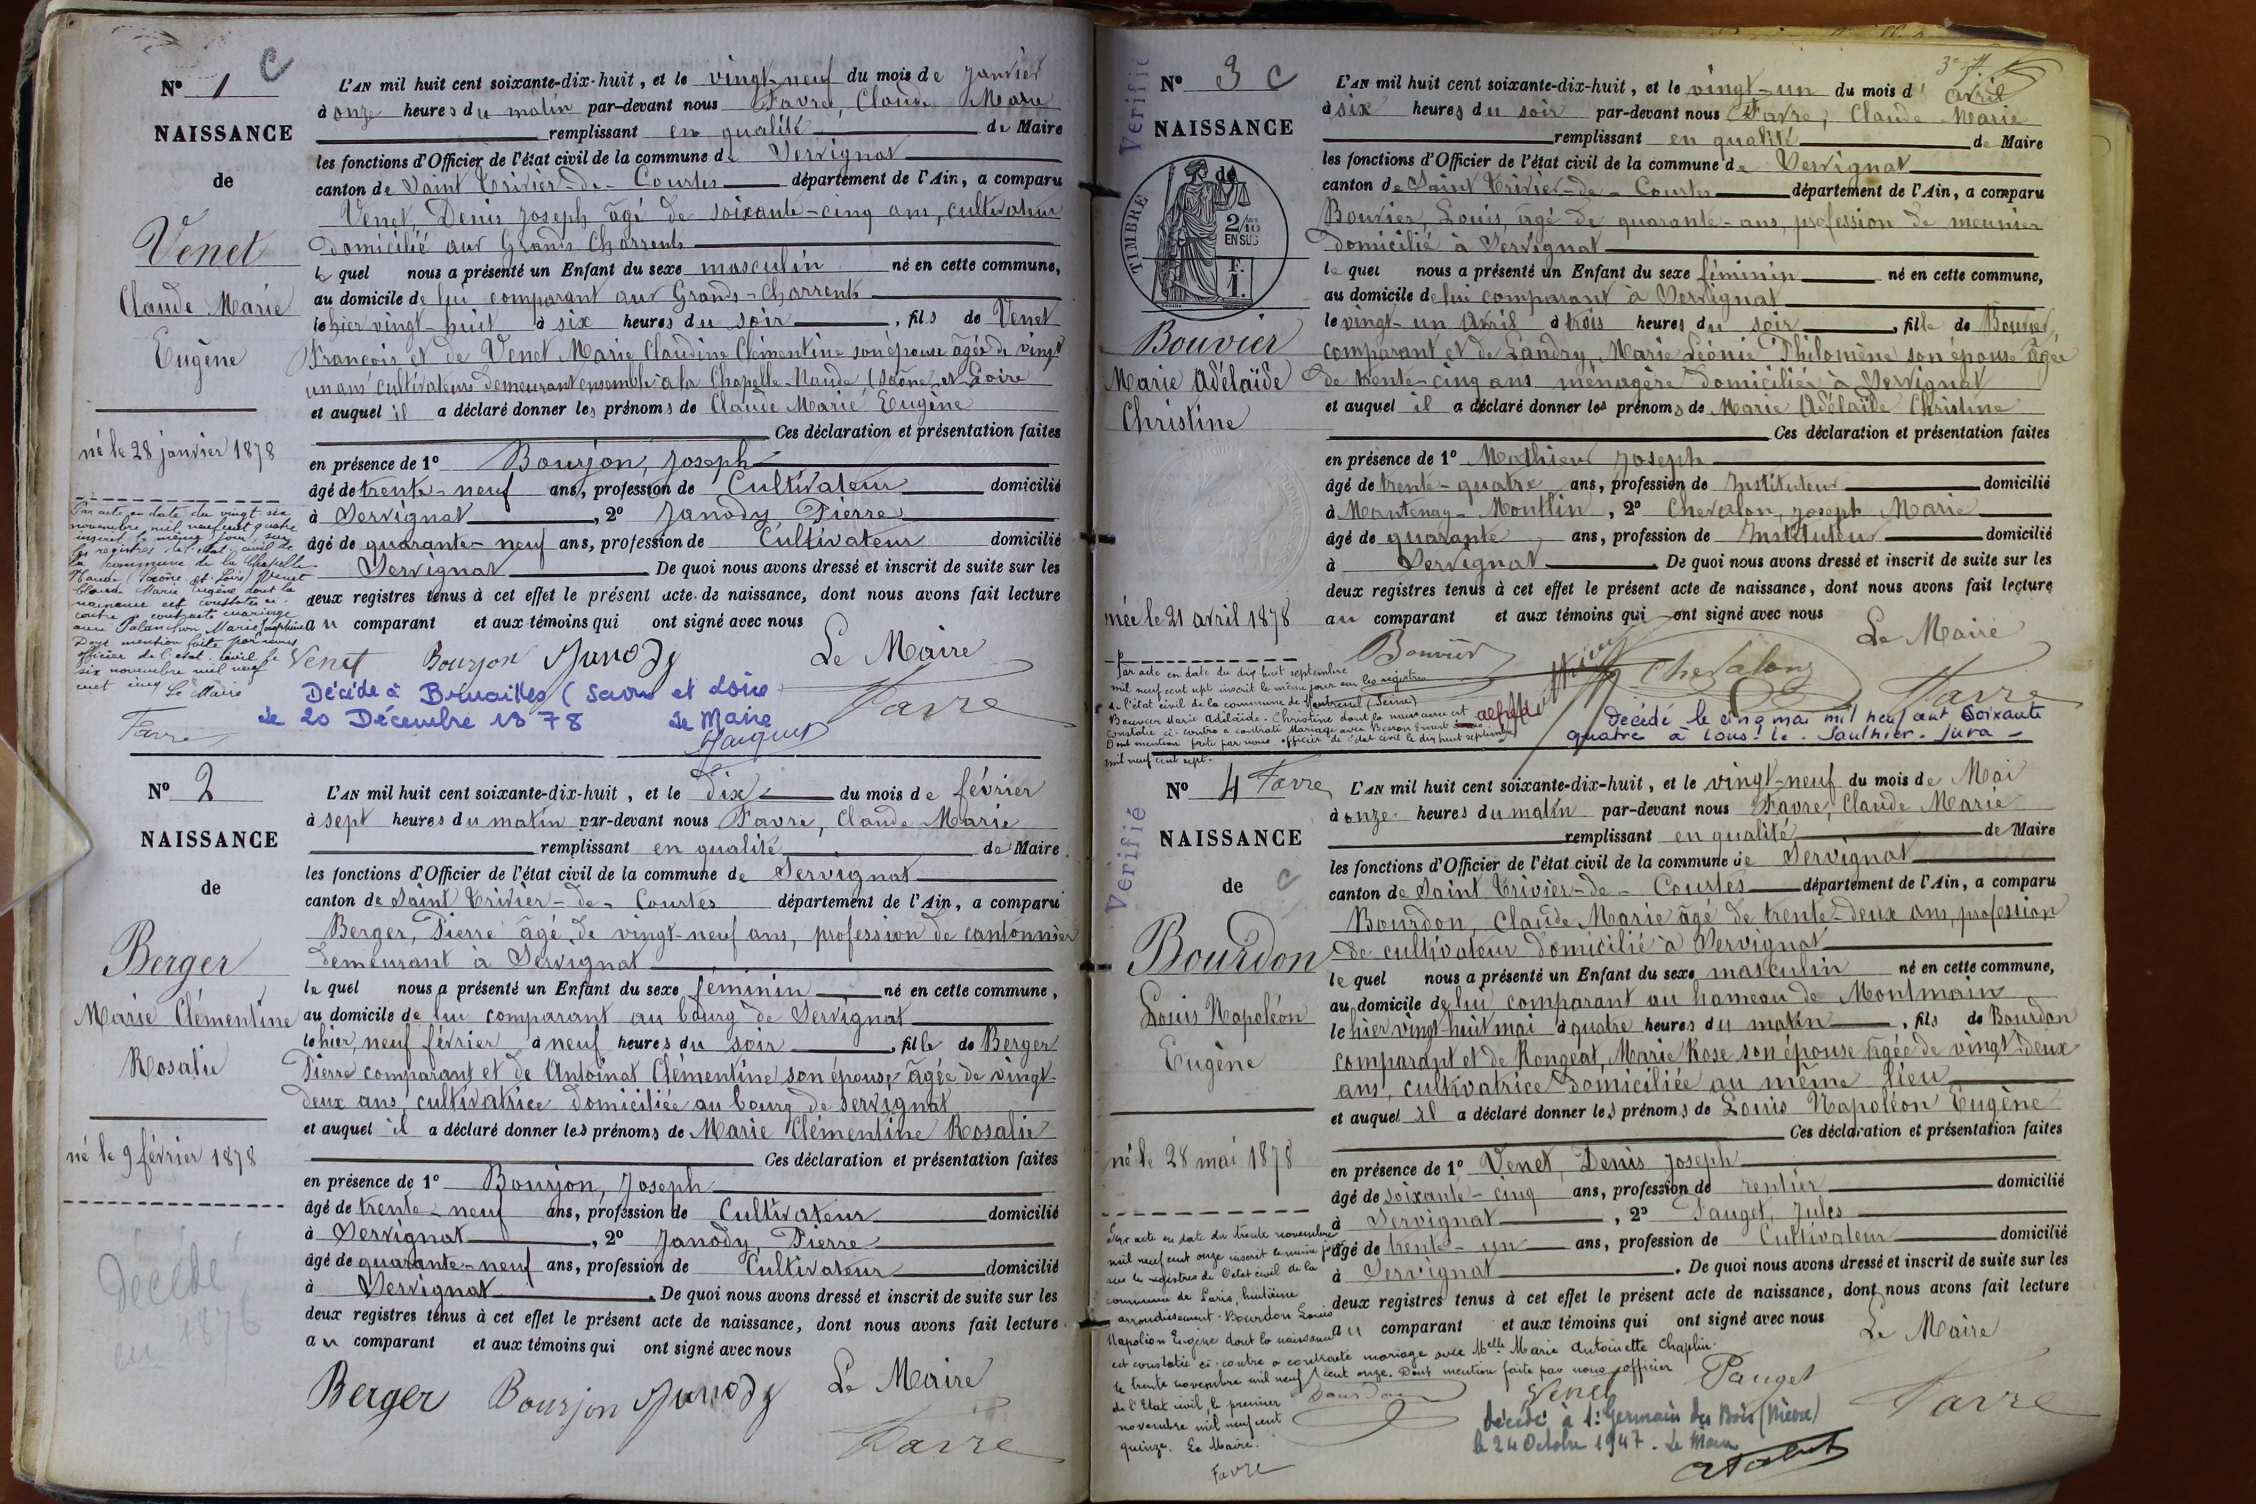 N° 1 C
NAISSANCE
de
Venet
Claude Marie
Eugène
né le 28 janvier 1878
Par acte en date du vingt six
novembre mil neuf cent quatre
inscrit le même jour sur
les registres de l'état civil de
la commune de la Chapelle
Naude (Saône et Loire) Venet
Claude Marie Eugène dont la
naissance est constatée ci-
contre a contracté mariage
avec Palanchon Marie Joséphine
Dont mention faite par nous
officier de l'état civil le
six novembre mil neuf
cent cinq Le Maire
Favre
L'AN mil huit cent soixante-dix-huit, et le vingt-neuf du mois de Janvier
à onze heures du matin par-devant nous Favre, Claude Marie
remplissant en qualité de Maire
les fonctions d'Officier de l'état civil de la commune de Servignat
canton de Saint Trivier-de-Courtes département de l'Ain, a comparu
Venet Denis Joseph âgé de soixante-cinq ans, cultivateur
domicilié aux Grands Charrents
le quel nous a présenté un Enfant du sexe masculin né en cette commune,
au domicile de lui comparant aux Grands-Charrents
le hier vingt-huit à six heures du soir, fils de Venet
François et de Venet Marie Claudine Clémentine son épouse âgée de vingt
un ans cultivateurs demeurant ensemble à la Chapelle-Naude (Saône et Loire
et auquel il a déclaré donner les prénoms de Claude Marie Eugène
Ces déclaration et présentation faites
en présence de 1° Bourjon, Joseph
âgé de trente-neuf ans, profession de Cultivateur domicilié
à Servignat, 2° Janody Pierre
âgé de quarante-neuf ans, profession de Cultivateur domicilié
Servignat De quoi nous avons dressé et inscrit de suite sur les
deux registres tenus à cet effet le présent acte de naissance, dont nous avons fait lecture
au comparant et aux témoins qui ont signé avec nous
Venet Bourjon Janody Le Maire
Favre
Décédé à Bruailles (Saône et Loire
le 20 Décembre 1878 Le Maire
N° 2
NAISSANCE
de
Berger
Marie Clémentine
Rosalie
né le 9 février 1878
Décédé
en 1876
L'AN mil huit cent soixante-dix-huit, et le dix du mois de février
à sept heures du matin par-devant nous Favre, Claude Marie
remplissant en qualité de Maire
les fonctions d'Officier de l'état civil de la commune de Servignat
canton de Saint Trivier-de-Courtes département de l'Ain, a comparu
Berger, Pierre âgé de vingt-neuf ans, profession de cantonnier
demeurant à Servignat
le quel nous a présenté un Enfant du sexe féminin né en cette commune,
au domicile de lui comparant au bourg de Servignat
le hier, neuf février à neuf heures du soir, fille de Berger
Pierre comparant et de Antoinat Clémentine son épouse âgée de vingt-
deux ans cultivatrice domiciliée au bourg de Servignat
et auquel il a déclaré donner les prénoms de Marie Clémentine Rosalie
Ces déclaration et présentation faites
en présence de 1° Bourjon, Joseph
âgé de trente-neuf ans, profession de Cultivateur domicilié
à Servignat, 2° Janody Pierre
âgé de quarante-neuf ans, profession de Cultivateur domicilié
à Servignat. De quoi nous avons dressé et inscrit de suite sur les
deux registres tenus à cet effet le présent acte de naissance, dont nous avons fait lecture
au comparant et aux témoins qui ont signé avec nous
Berger Bourjon Janody Le Maire
Favre
Verifié
N° 3 C
NAISSANCE
de
TIMBRE
2/10
EN SUS
F.
1.
Bouvier
Marie Adélaïde
Christine
née le 21 avril 1878
Par acte en date du dix huit septembre
mil neuf cent sept inscrit le même jour sur les registres
de l'état civil de la commune de Montreuil (Seine)
Bouvier Marie Adélaïde-Christine dont la naissance est
constatée ci-contre a contracté Mariage avec Besson Ernest
Dont mention faite par nous officier de l'état civil le dix huit septembre
mil neuf cent sept.
Favre
L'AN mil huit cent soixante-dix-huit, et le vingt-un du mois d'avril
à six heures du soir par-devant nous Favre, Claude Marie
remplissant en qualité de Maire
les fonctions d'Officier de l'état civil de la commune de Servignat
canton de Saint Trivier-de-Courtes département de l'Ain, a comparu
Bouvier, Louis, âgé de quarante-ans, profession de meunier
domicilié à Servignat
le quel nous a présenté un Enfant du sexe féminin né en cette commune,
au domicile de lui comparant à Servignat
le vingt-un Avril à trois heures du soir, fille de Bouvier,
comparant et de Landry, Marie Léonie Philomène son épouse âgée
de trente-cinq ans ménagère domiciliée à Servignat
et auquel il a déclaré donner les prénoms de Marie Adélaïde Christine
Ces déclaration et présentation faites
en présence de 1° Mathieu Joseph
âgé de trente-quatre ans, profession de Instituteur domicilié
à Mantenay-Montlin, 2° Chevalon, Joseph Marie
âgé de quarante ans, profession de Instituteur domicilié
à Servignat. De quoi nous avons dressé et inscrit de suite sur les
deux registres tenus à cet effet le présent acte de naissance, dont nous avons fait lecture
au comparant et aux témoins qui ont signé avec nous
Le Maire
Bouvier Chevalon Favre
Décédé le cinq mai mil neuf cent soixante
quatre à Lons-le-Saulnier-Jura-
Verifié
N° 4
NAISSANCE
de C
Bourdon
Louis Napoléon
Eugène
né le 28 mai 1878
Par acte en date du trente novembre
mil neuf cent onze inscrit le même jour
sur les registres de l'état civil de la
commune de Paris, huitième
arrondissement. Bourdon Louis
Napoléon Eugène dont la naissance
est constatée ci-contre a contracté mariage avec Melle Marie Antoinette Chaplin.
le trente novembre mil neuf cent onze. Dont mention faite par nous officier
de l'Etat civil le premier
novembre mil neuf cent
quinze. Le Maire.
Favre
L'AN mil huit cent soixante-dix-huit, et le vingt-neuf du mois de Mai
à onze heures du matin par-devant nous Favre, Claude Marie
remplissant en qualité de Maire
les fonctions d'Officier de l'état civil de la commune de Servignat
canton de Saint Trivier-de-Courtes département de l'Ain, a comparu
Bourdon, Claude Marie âgé de trente-deux ans, profession
de cultivateur domicilié à Servignat
le quel nous a présenté un Enfant du sexe masculin né en cette commune,
au domicile de lui comparant au hameau de Montmain
le hier vingt-huit mai à quatre heures du matin, fils de Bourdon
comparant et de Rongeat, Marie Rose son épouse âgée de vingt-deux
ans, cultivatrice domiciliée au même lieu
et auquel il a déclaré donner les prénoms de Louis Napoléon Eugène
Ces déclaration et présentation faites
en présence de 1° Venet, Denis Joseph
âgé de soixante-cinq ans, profession de rentier domicilié
à Servignat, 2° Pauget, Jules
âgé de trente-un ans, profession de Cultivateur domicilié
à Servignat. De quoi nous avons dressé et inscrit de suite sur les
deux registres tenus à cet effet le présent acte de naissance, dont nous avons fait lecture
au comparant et aux témoins qui ont signé avec nous
Le Maire
Bourdon Venet Pauget Favre
décédé à St Germain des Bois (Nièvre)
le 24 Octobre 1947. Le Maire